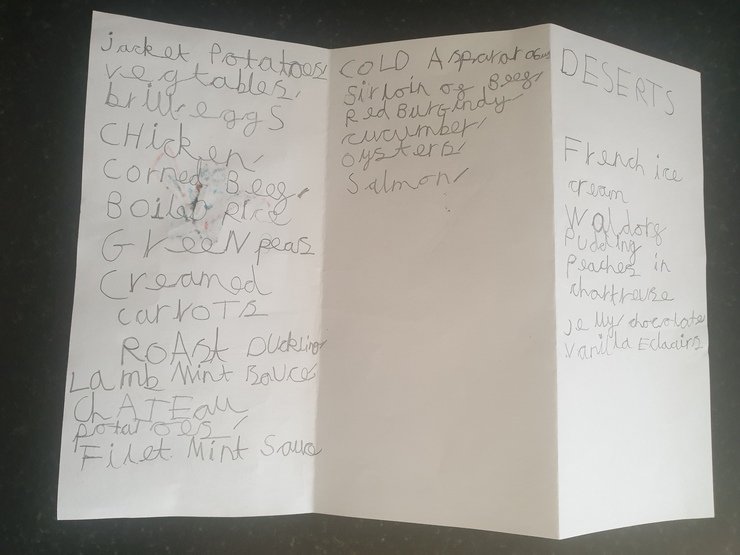 jacket Potatoes
vegtables
brill eggs
CHicken
Corned Beeg
BOiled Rice
GreeN peas
Creamed
carroTs
ROAst Duckling
Lamb Mint Souce
ChATEau
potatoes
Filet Mint Sauce
COLD Asparatagus
Sirloin og Beeg
Red Burgindy
cucumber
Oysters
Salmon
DESERTS
French ice
cream
Waldorg
Pudding
Peaches in
chartreuse
jelly chocolate
vanilla Eclaairs